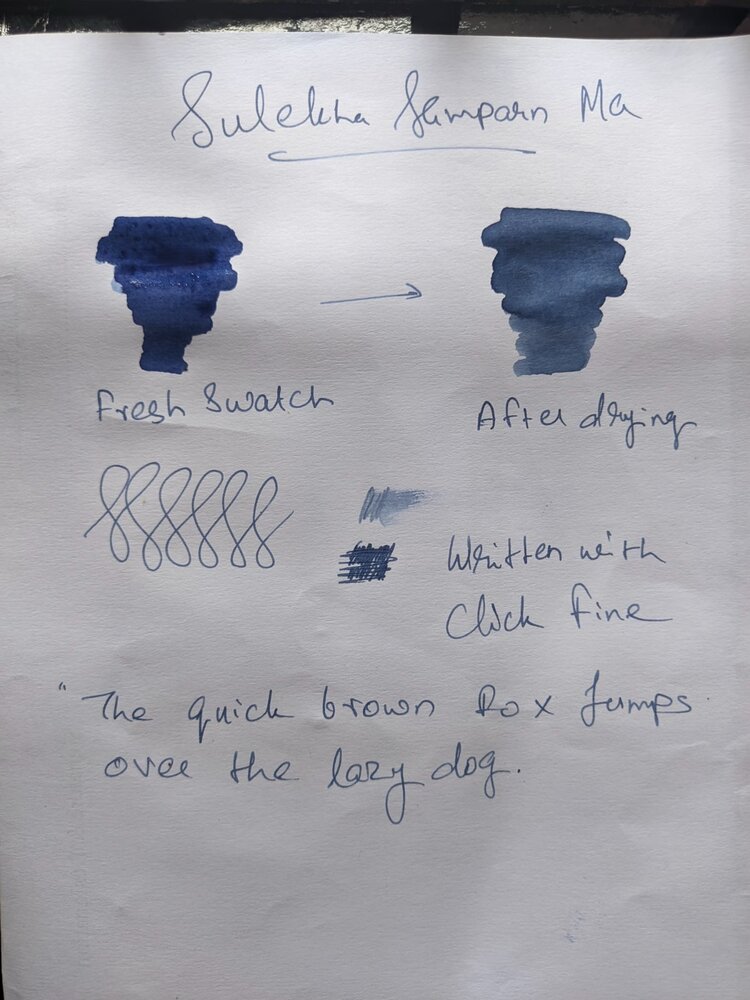 Sulekha Samparn Ma
Fresh Swatch
After drying
Written with
Click Fine
"The quick brown fox Jumps
over the lazy dog.